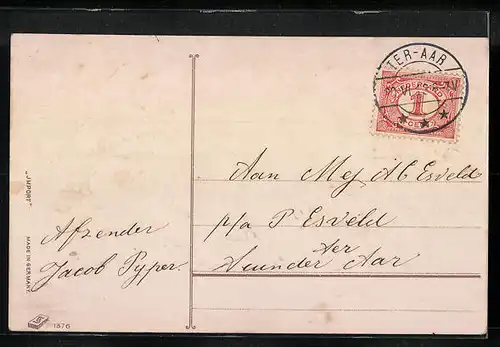 TER-AAR
NEDERLAND
1
CENT
Aan Mej AC Esveld
p/a P Esveld
Ter
Aar
Afzender
Jacob Pyper.
"IMPORT"
MADE IN GERMANY.
1376